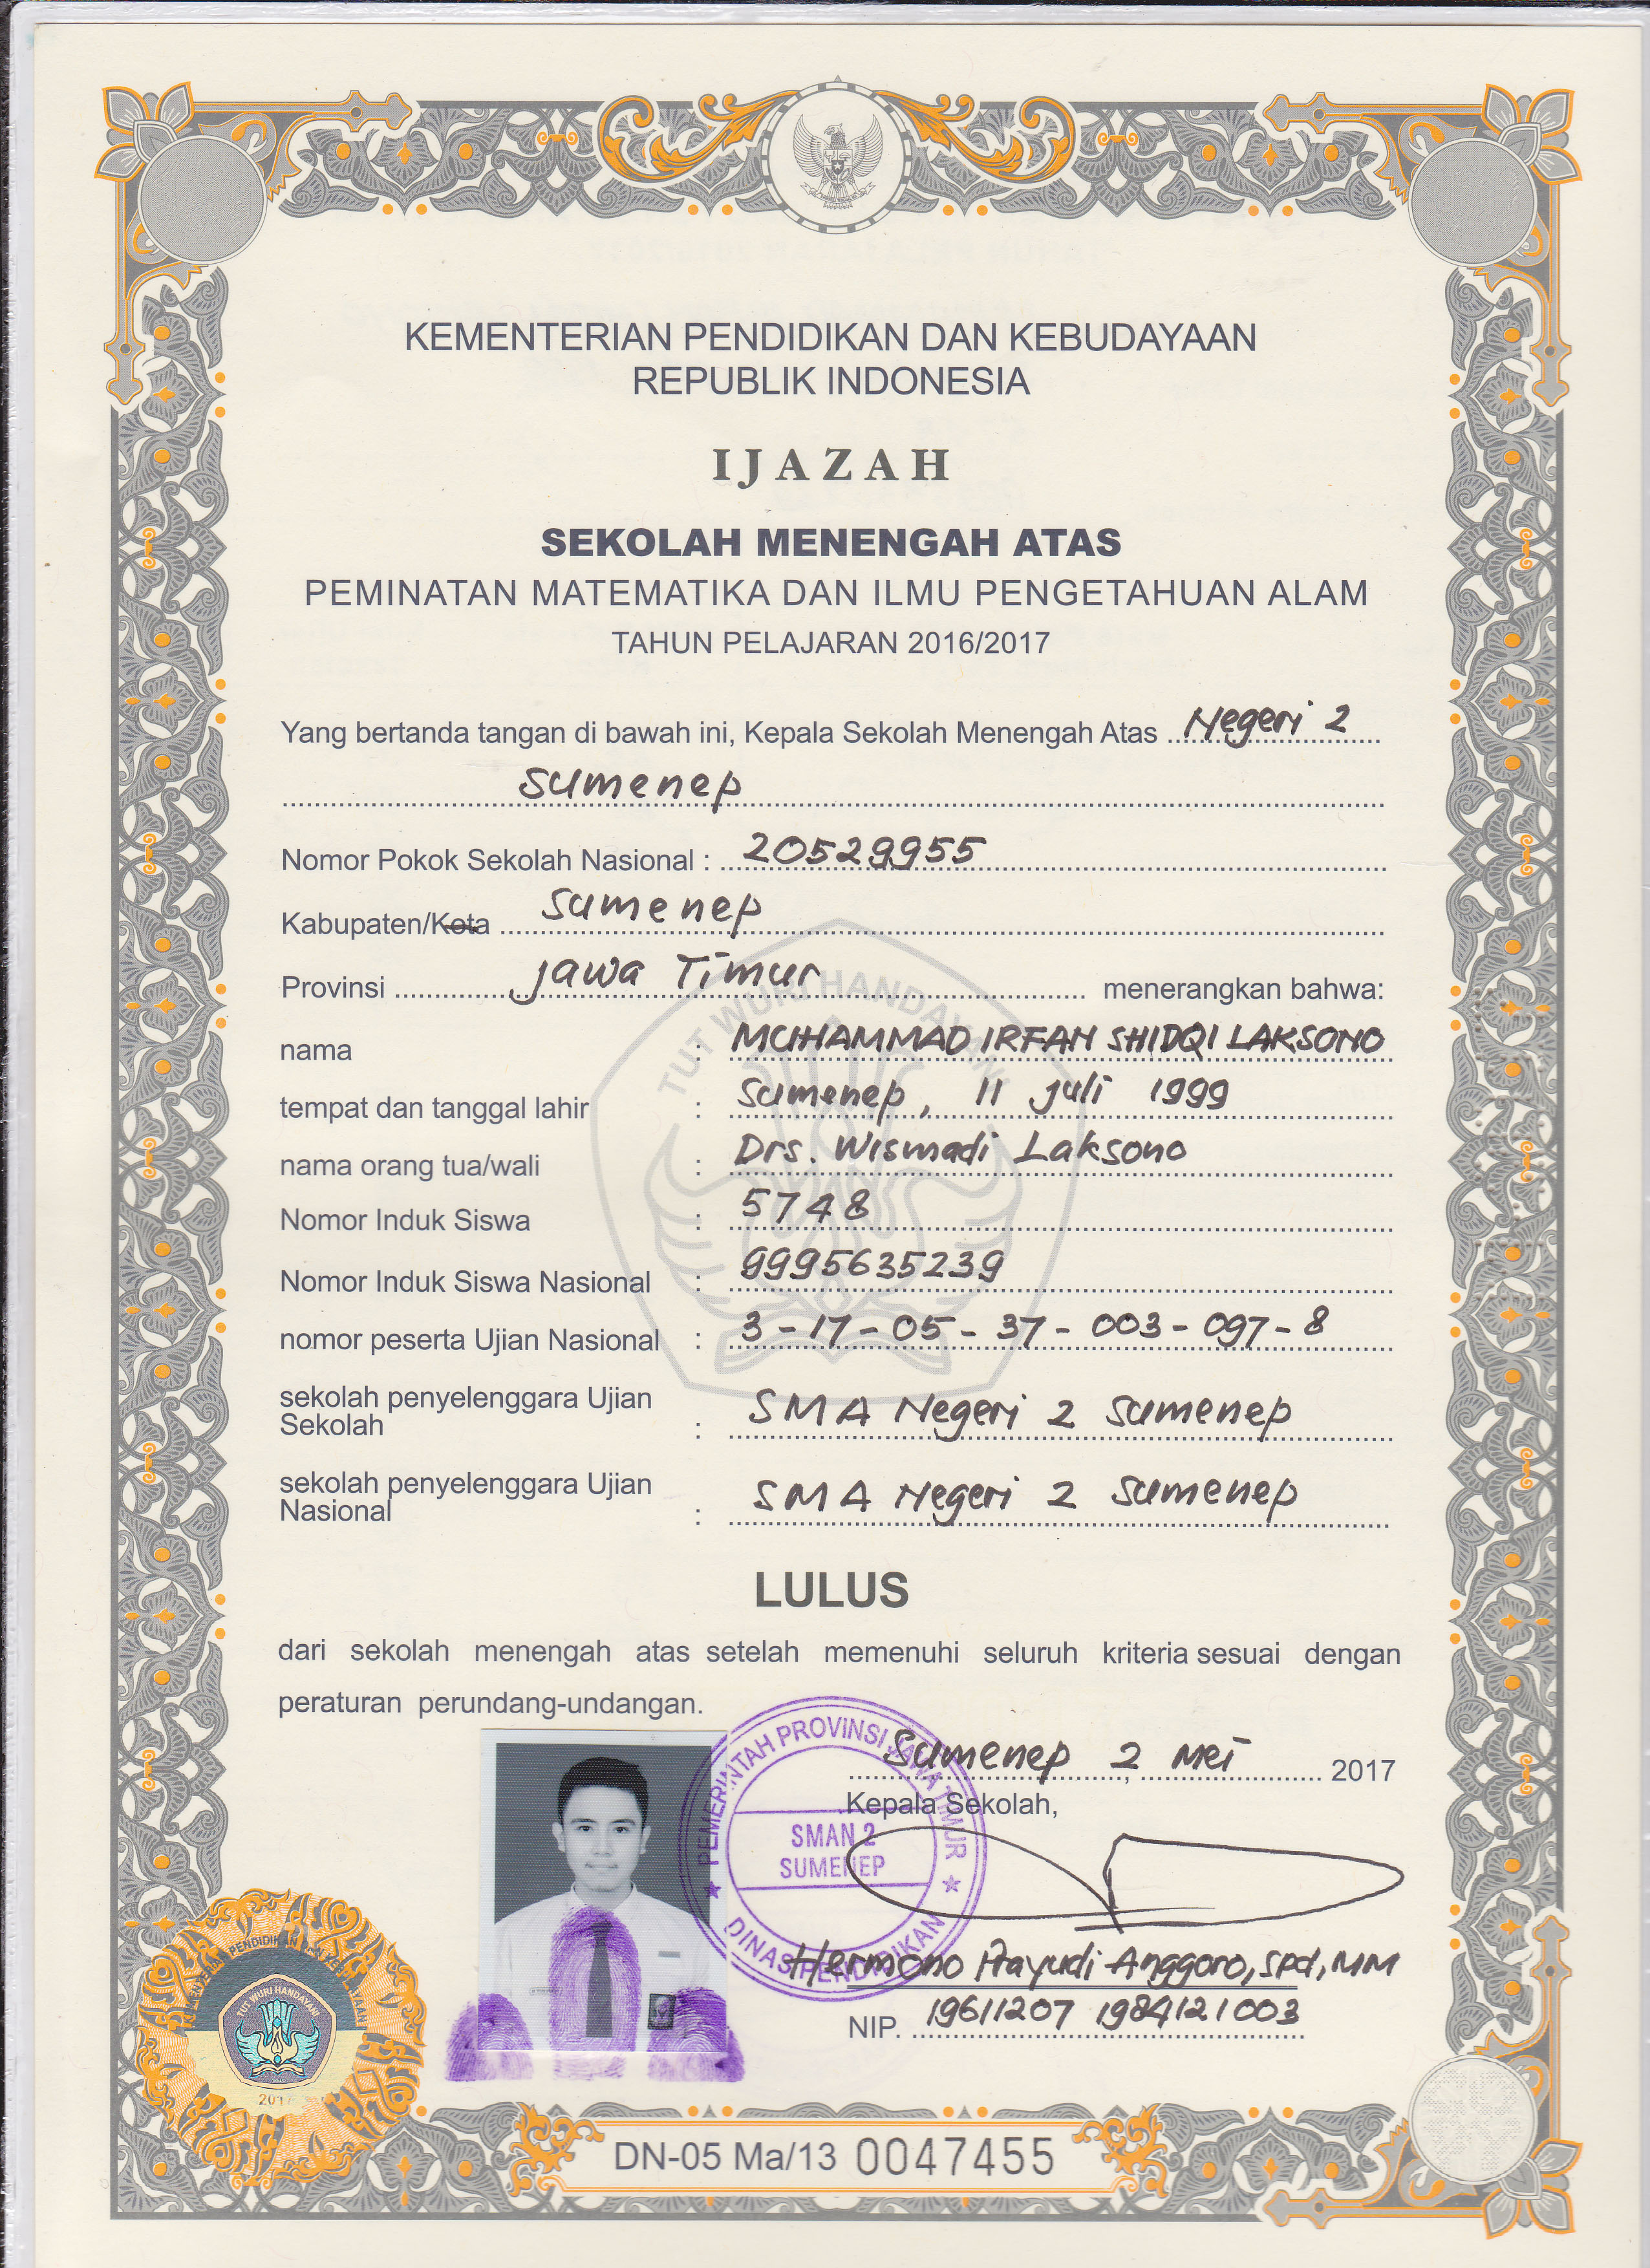 KEMENTERIAN PENDIDIKAN DAN KEBUDAYAAN
REPUBLIK INDONESIA
IJAZAH
SEKOLAH MENENGAH ATAS
PEMINATAN MATEMATIKA DAN ILMU PENGETAHUAN ALAM
TAHUN PELAJARAN 2016/2017
Yang bertanda tangan di bawah ini, Kepala Sekolah Menengah Atas Negeri 2
Sumenep
Nomor Pokok Sekolah Nasional : 20529955
Kabupaten/Kota Sumenep
Provinsi Jawa Timur menerangkan bahwa:
nama : MUHAMMAD IRFAN SHIDQI LAKSONO
tempat dan tanggal lahir : Sumenep, 11 Juli 1999
nama orang tua/wali : Drs. Wismadi Laksono
Nomor Induk Siswa : 5748
Nomor Induk Siswa Nasional : 9995635239
nomor peserta Ujian Nasional : 3-17-05-37-003-097-8
sekolah penyelenggara Ujian
Sekolah : SMA Negeri 2 Sumenep
sekolah penyelenggara Ujian
Nasional : SMA Negeri 2 Sumenep
LULUS
dari sekolah menengah atas setelah memenuhi seluruh kriteria sesuai dengan
peraturan perundang-undangan.
Sumenep, 2 Mei 2017
Kepala Sekolah,
PEMERINTAH PROVINSI JAWA TIMUR
SMAN 2
SUMENEP
DINAS PENDIDIKAN
Hermono Prayudi Anggoro, SPd, MM
NIP. 19611207 1984121003
TUT WURI HANDAYANI
TUT WURI HANDAYANI
2017
DN-05 Ma/13 0047455